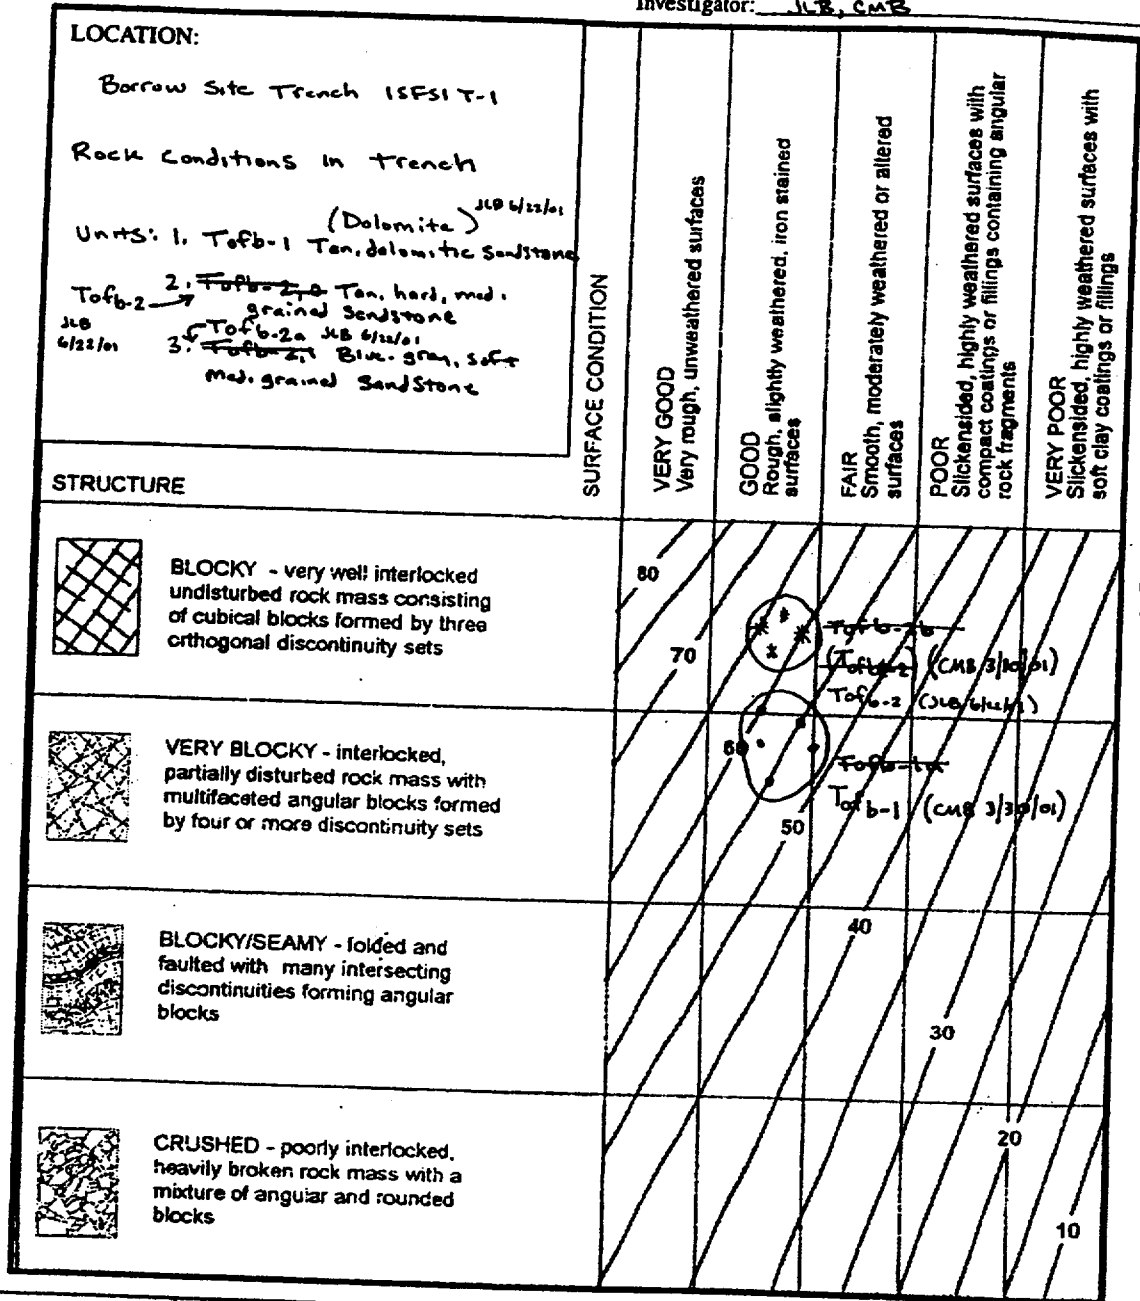 Investigator: JLB, CMB
LOCATION:
Borrow Site Trench ISFSI T-1
Rock Conditions in Trench
(Dolomite) JLB 6/22/01
Units: 1. Tofb-1 Tan, dolomitic Sandstone
Tofb-2 2. Tan, hard, med.
grained Sandstone
JLB
6/22/01
Tofb-2a JLB 6/22/01
3. Blue-gray, soft
med. grained Sandstone
STRUCTURE
SURFACE CONDITION
VERY GOOD
Very rough, unweathered surfaces
GOOD
Rough, slightly weathered, iron stained
surfaces
FAIR
Smooth, moderately weathered or altered
surfaces
POOR
Slickensided, highly weathered surfaces with
compact coatings or fillings containing angular
rock fragments
VERY POOR
Slickensided, highly weathered surfaces with
soft clay coatings or fillings
BLOCKY - very well interlocked
undisturbed rock mass consisting
of cubical blocks formed by three
orthogonal discontinuity sets
80
70
(Tofb-2) (CMB 3/30/01)
Tofb-2
VERY BLOCKY - interlocked,
partially disturbed rock mass with
multifaceted angular blocks formed
by four or more discontinuity sets
60
Tofb-1 (CMB 3/30/01)
50
BLOCKY/SEAMY - folded and
faulted with many intersecting
discontinuities forming angular
blocks
40
30
CRUSHED - poorly interlocked,
heavily broken rock mass with a
mixture of angular and rounded
blocks
20
10